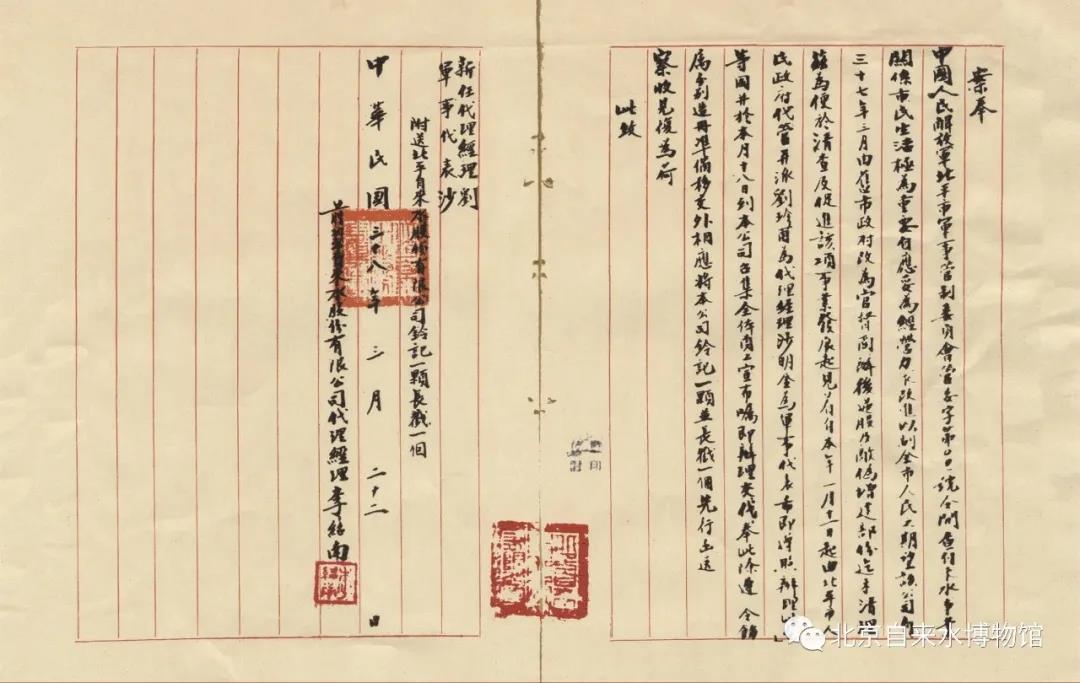 案奉
中國人民解放軍北平市軍事管制委員會管字第 號令開查自來水事業
關係市民生活極為重要自應妥為經營力求改進以副全市人民之期望該公司自
三十七年三月由舊市政府改為官督商辦後逆股及敵偽增建部份迄未清理
茲為便於清查及促進該項事業發展起見着自本年一月十一日起由北平市人
民政府代管并派劉 為代理經理沙明 為軍事代表希即遵照辦理
等因并於本月十八日到本公司召集全体員工宣布囑即辦理交代奉此除遵令飭
屬分別造冊準備移交外相應將本公司鈐記一顆並長戳一個先行函送
察收見復為荷
此致
新任代理經理劉
軍事代表沙
附送北平自來水股份有限公司鈐記一顆長戳一個
中華民國三十八年三月二十二日
自來水股份有限公司代理經理李紹南
北京自来水博物馆